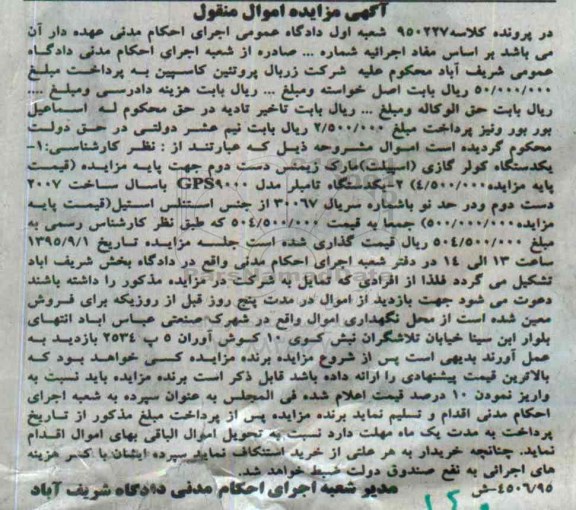 آگهی مزایده اموال منقول
در پرونده کلاسه۹۵۰۲۲۷ شعبه اول دادگاه عمومی اجرای احکام مدنی عهده دار آن
می باشد بر اساس مفاد اجرائیه شماره ... صادره از شعبه اجرای احکام مدنی دادگاه
عمومی شریف آباد محکوم علیه شرکت زربال پروتئین کاسپین به پرداخت مبلغ
۵۰/۰۰۰/۰۰۰ ریال بابت اصل خواسته ومبلغ ... ریال بابت هزینه دادرسی ومبلغ ....
ریال بابت حق الوکاله ومبلغ ... ریال بابت تاخیر تادیه در حق محکوم له اسماعیل
بور بور ونیز پرداخت مبلغ ۲/۵۰۰/۰۰۰ ریال بابت نیم عشر دولتی در حق دولت
محکوم گردیده است اموال مشروحه ذیل که عبارتند از : نظر کارشناسی:۱-
یکدستگاه کولر گازی (اسپیلت)مارک زیمنس دست دوم جهت پایه مزایده (قیمت
پایه مزایده۴/۵۰۰/۰۰۰) ۲-یکدستگاه تامبلر مدل GPS۹۰۰۰ باسال ساخت ۲۰۰۷
دست دوم ودر حد نو باشماره سریال ۳۰۰۶۷ از جنس استنلس استیل(قیمت پایه
مزایده۵۰۰/۰۰۰/۰۰۰) جمعا به قیمت ۵۰۴/۵۰۰/۰۰۰ که طبق نظر کارشناس رسمی به
مبلغ ۵۰۴/۵۰۰/۰۰۰ ریال قیمت گذاری شده است جلسه مزایده تاریخ ۱۳۹۵/۹/۱
ساعت ۱۳ الی ۱۴ در دفتر شعبه اجرای احکام مدنی واقع در دادگاه بخش شریف اباد
تشکیل می گردد فلذا از افرادی که تمایل به شرکت در مزایده مذکور را داشته باشند
دعوت می شود جهت بازدید از اموال در مدت پنج روز قبل از روزیکه برای فروش
معین شده است از محل نگهداری اموال واقع در شهرک صنعتی عباس اباد انتهای
بلوار ابن سینا خیابان تلاشگران نبش کوی ۱۰ کوش آوران ۵ پ ۲۵۳۴ بازدید به
عمل آورند بدیهی است پس از شروع مزایده برنده مزایده کسی خواهد بود که
بالاترین قیمت پیشنهادی را ارائه داده باشد قابل ذکر است برنده مزایده باید نسبت به
واریز نمودن ۱۰ درصد قیمت اعلام شده فی المجلس به عنوان سپرده به شعبه اجرای
احکام مدنی اقدام و تسلیم نماید برنده مزایده پس از پرداخت مبلغ مذکور از تاریخ
پرداخت به مدت یک ماه مهلت دارد نسبت به تحویل اموال الباقی بهای اموال اقدام
نماید. چنانچه خریدار به هر علتی از خرید استنکاف نماید سپرده ایشان با کسر هزینه
های اجرائی به نفع صندوق دولت ضبط خواهد شد.
۴۵۰۶/۹۵-ش مدیر شعبه اجرای احکام مدنی دادگاه شریف آباد